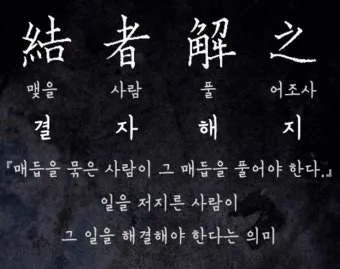 結 者 解 之
맺을 사람 풀 어조사
결 자 해 지
『매듭을 묶은 사람이 그 매듭을 풀어야 한다.』
일을 저지른 사람이
그 일을 해결해야 한다는 의미